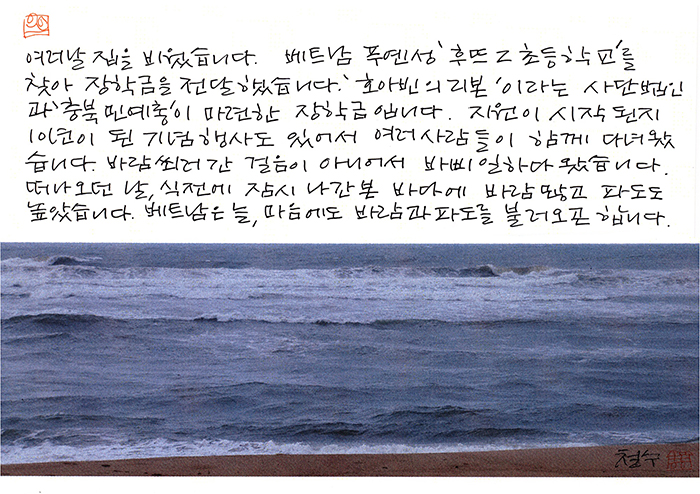 여러날 집을 비웠습니다. 베트남 푸옌성 '후뜨Z초등학교'를
찾아 장학금을 전달했습니다. '호아빈의 리본'이라는 사단법인
과 '충북민예총'이 마련한 장학금입니다. 지원이 시작된지
10년이 된 기념행사도 있어서 여러사람들이 함께 다녀왔
습니다. 바람쐬러 간 걸음이 아니어서 바삐 일하다 왔습니다.
떠나오던 날, 식전에 잠시 나간본 바다에 바람많고 파도도
높았습니다. 베트남은 늘, 마음에도 바람과 파도를 불러오곤 합니다.
철수